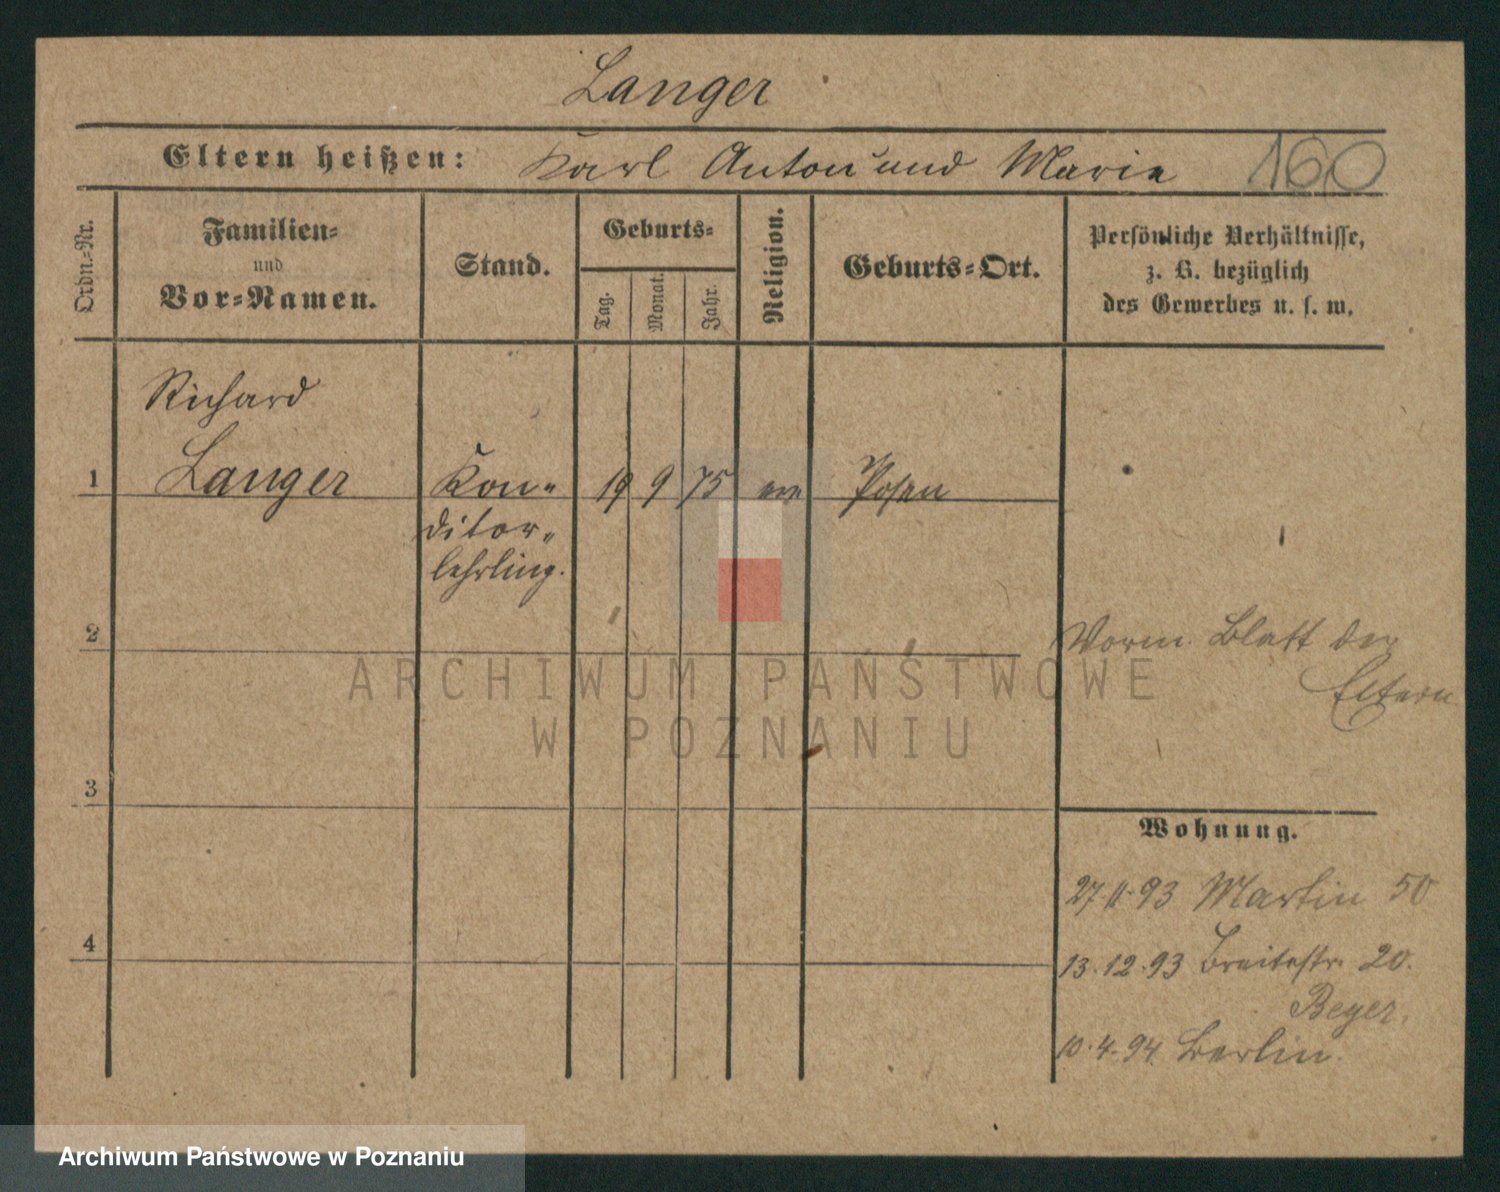 Langer
Eltern heißen: Karl Anton und Marie 160
Ordn.-Nr.
Familien-
und
Vor-Namen.
Stand.
Geburts-
Tag.
Monat.
Jahr.
Religion.
Geburts-Ort.
Persönliche Verhältnisse,
z. B. bezüglich
des Gewerbes u. s. w.
Richard
1 Langer Kon- 19 9 75 Posen
ditor-
lehrling.
2
Vorm. Blatt der
Eltern
3
Wohnung.
27.11.93 Martin 50
4
13.12.93 Breitestr. 20.
Beyer.
10.4.94. Berlin.
ARCHIWUM PAŃSTWOWE
W POZNANIU
Archiwum Państwowe w Poznaniu